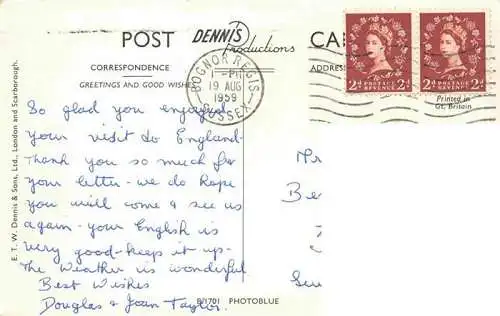 POST DENNIS Productions CA
CORRESPONDENCE ADDRES
GREETINGS AND GOOD WISHE
BOGNOR REGIS
1-PM
19 AUG
1959
SUSSEX
2d POSTAGE REVENUE 2d
2d POSTAGE REVENUE 2d
Printed in
Gt. Britain
So glad you enjoyed
your visit to England-
Thank you so much for
your letter- we do hope
you will come & see us
again- your English is
very good- keep it up-
The Weather is wonderful
Best Wishes
Douglas & Joan Taylor.
B/1701 PHOTOBLUE
E. T. W. Dennis & Sons, Ltd., London and Scarborough.